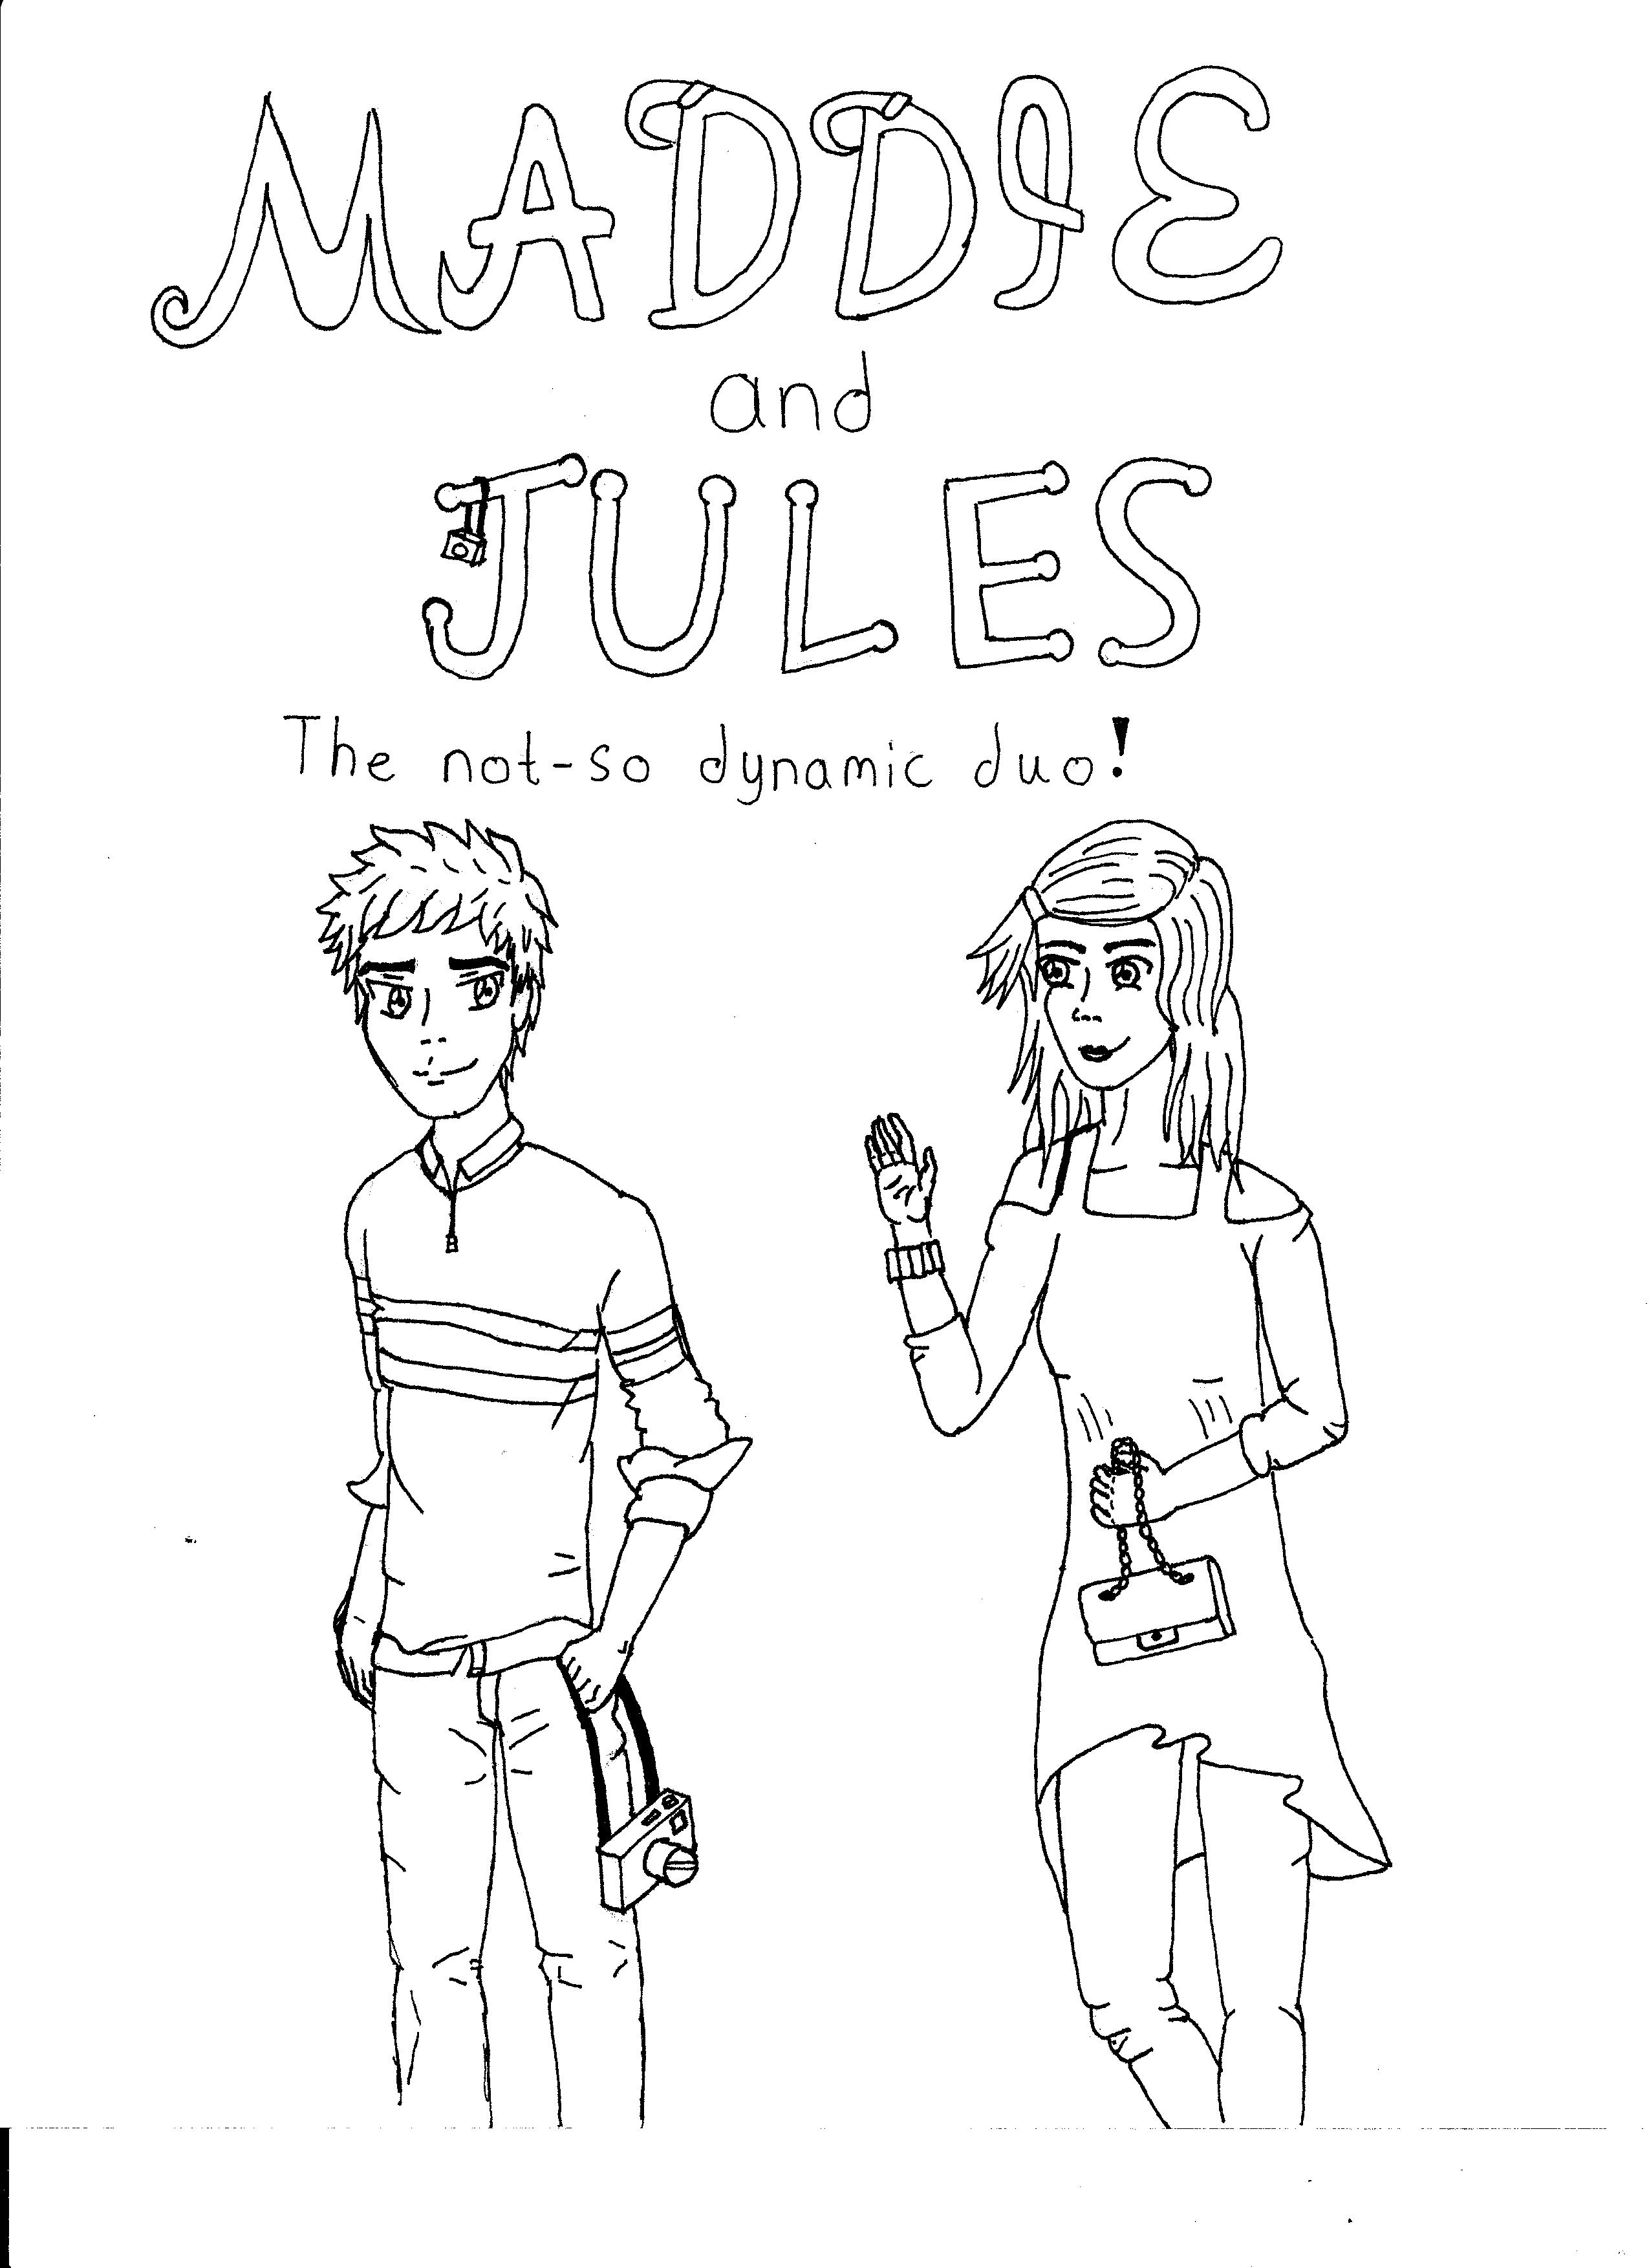 MADDIE
and
JULES
The not-so dynamic duo!